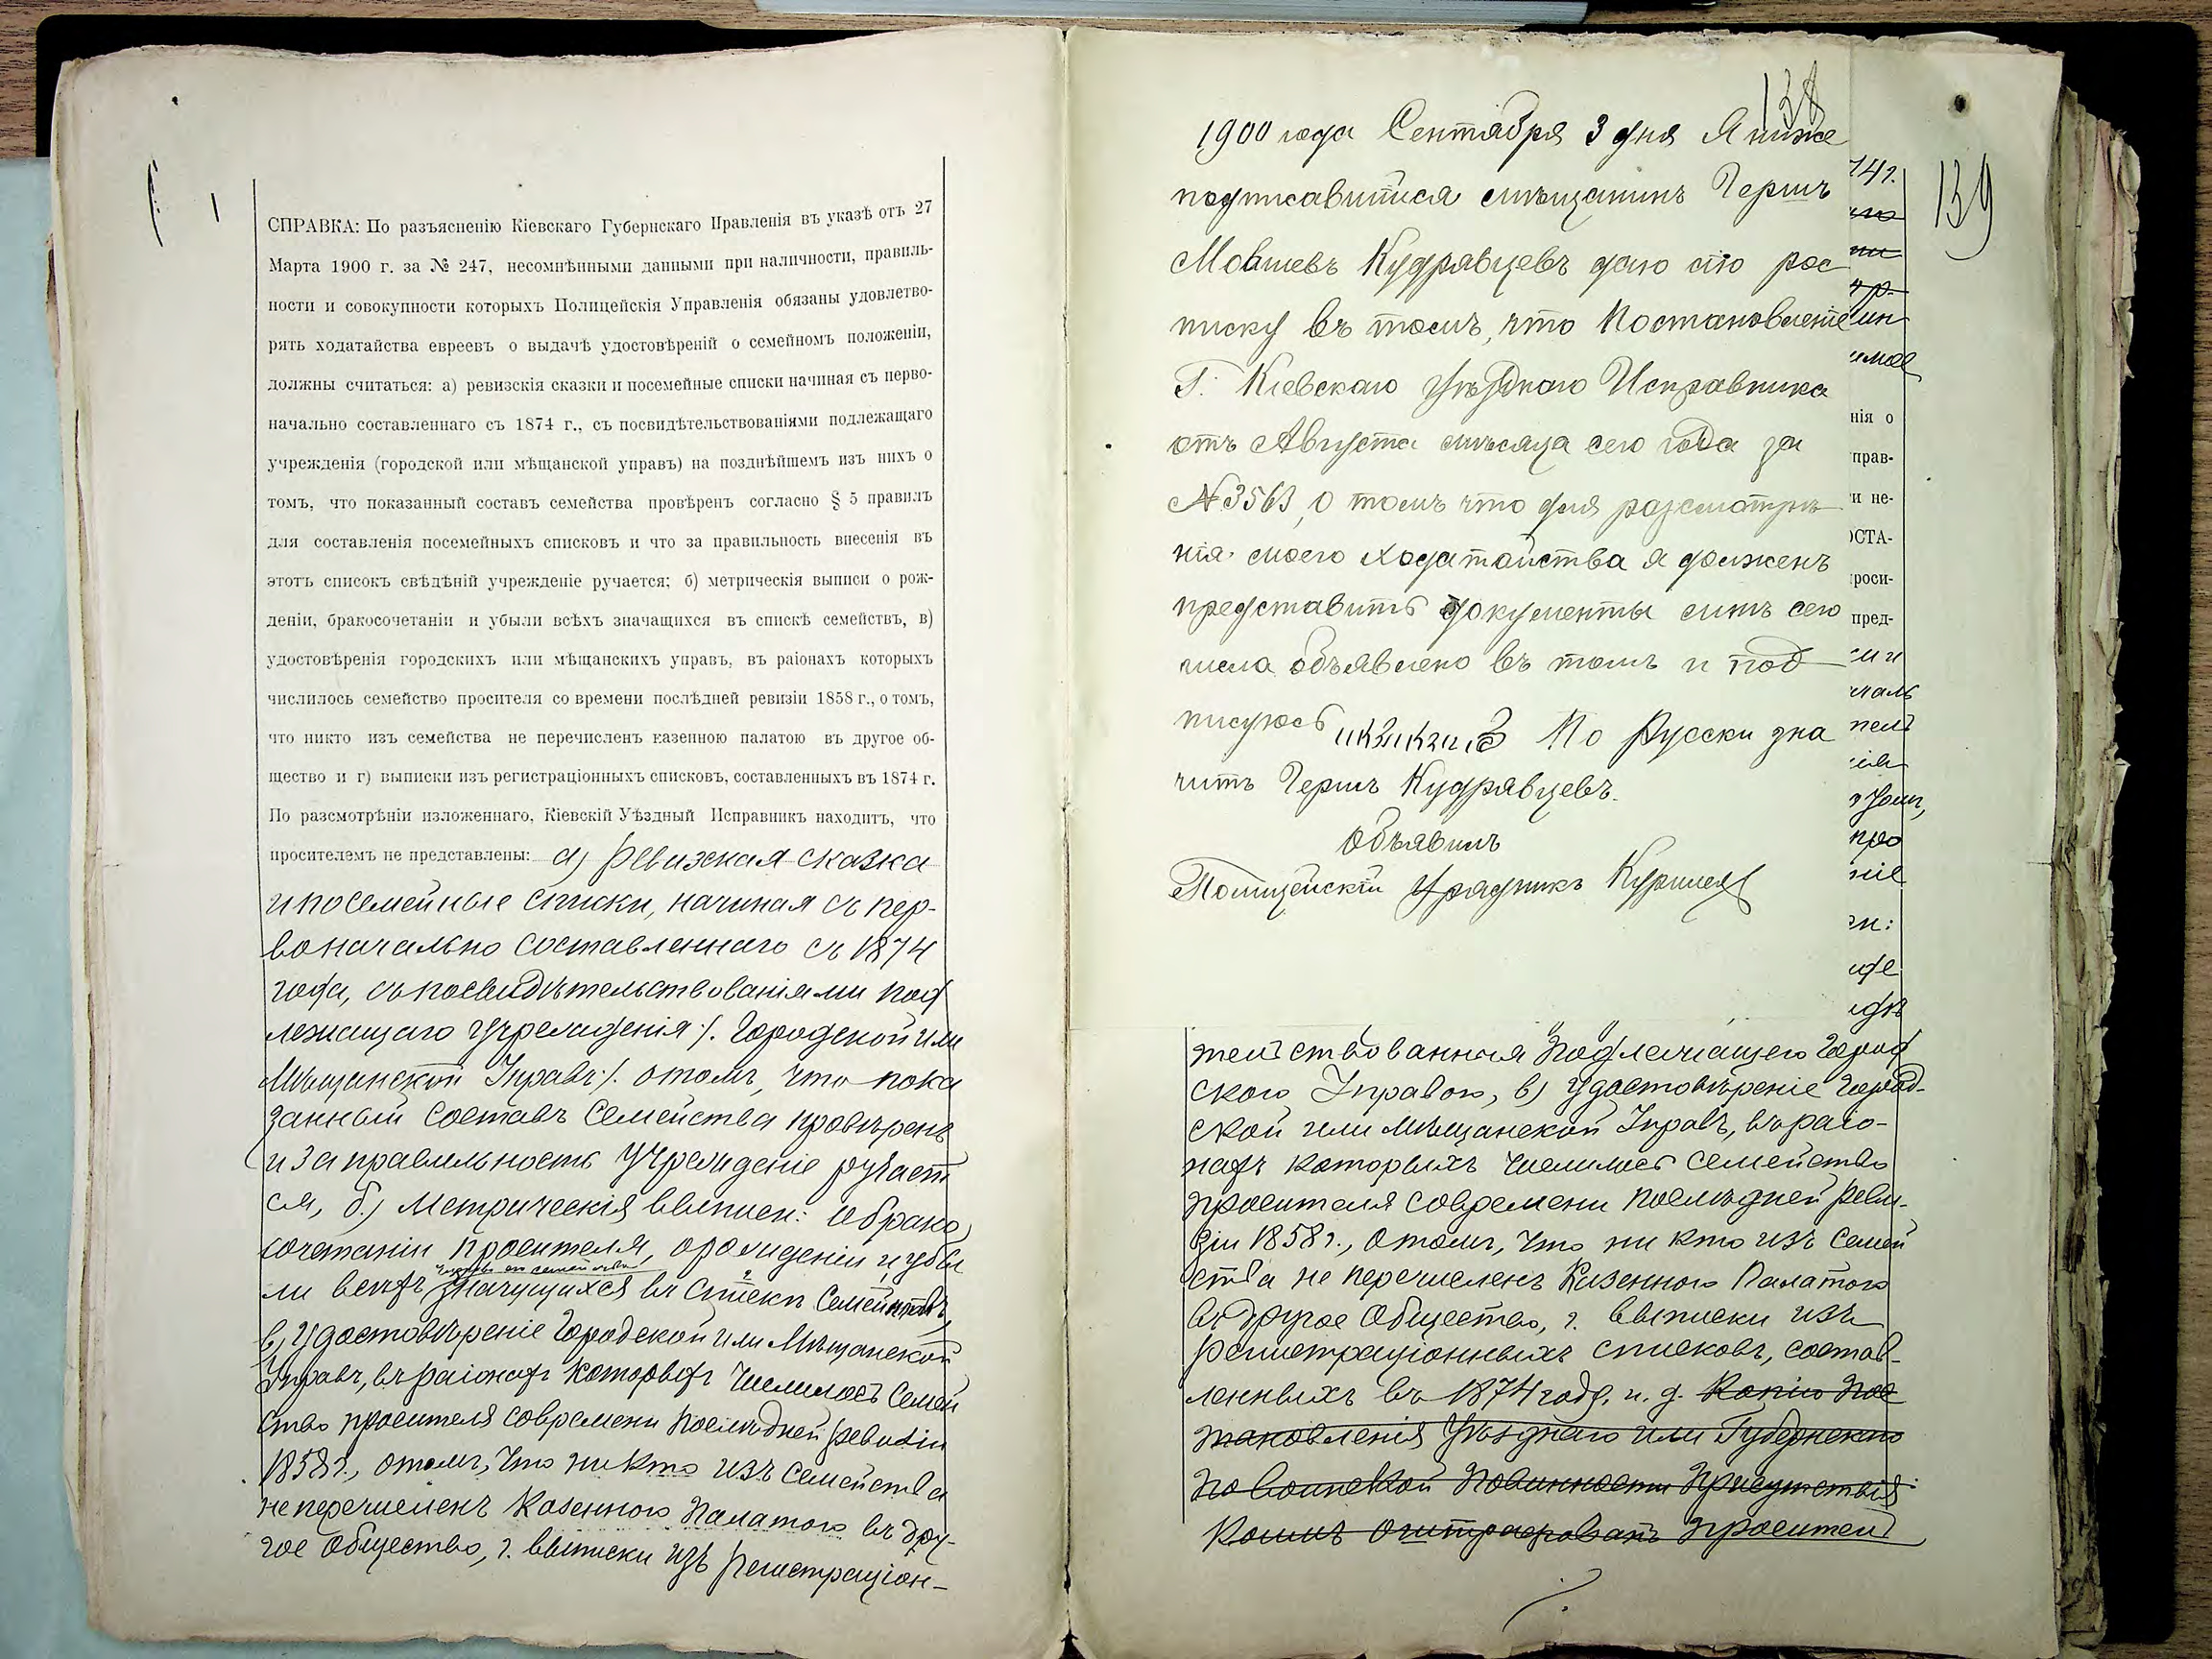 СПРАВКА: По разъясненію Кіевскаго Губернскаго Правленія въ указѣ отъ 27
Марта 1900 г. за № 247, несомнѣнными данными при наличности, правиль-
ности и совокупности которыхъ Полицейскія Управленія обязаны удовлетво-
рять ходатайства евреевъ о выдачѣ удостовѣреній о семейномъ положеніи,
должны считаться: а) ревизскія сказки и посемейные списки начиная съ перво-
начально составленнаго съ 1874 г., съ посвидѣтельствованіями подлежащаго
учрежденія (городской или мѣщанской управъ) на позднѣйшемъ изъ нихъ о
томъ, что показанный составъ семейства провѣренъ согласно § 5 правилъ
для составленія посемейныхъ списковъ и что за правильность внесенія въ
этотъ списокъ свѣдѣній учрежденіе ручается; б) метрическія выписи о рож-
деніи, бракосочетаніи и убыли всѣхъ значащихся въ спискѣ семействъ, в)
удостовѣренія городскихъ или мѣщанскихъ управъ, въ раіонахъ которыхъ
числилось семейство просителя со времени послѣдней ревизіи 1858 г., о томъ,
что никто изъ семейства не перечисленъ казенною палатою въ другое об-
щество и г) выписки изъ регистраціонныхъ списковъ, составленныхъ въ 1874 г.
По разсмотрѣніи изложеннаго, Кіевскій Уѣздный Исправникъ находитъ, что
просителемъ не представлены: а) Ревизская сказка
и посемейные списки, начиная съ пер-
воначально составленнаго съ 1874
года, съ посвидѣтельствованіями под
лежащаго учрежденія /. Городской или
Мѣщанской Управъ /. о томъ, что пока
занный составъ семейства провѣренъ
и за правильность учрежденіе ручает
ся, б.) Метрическія выписи: о брако
сочетаніи просителя, о рожденіи и убы
ли всѣхъ значущихся въ списки семействъ,
в) Удостовѣреніе Городской или Мѣщанской
Управъ, въ раіонахъ которыхъ числилось семей
ство просителя со времени послѣдней ревизіи
1858 г., о томъ, что ни кто изъ семейства
не перечисленъ Казенною Палатою въ дру-
гое Общество, г. выписки изъ регистраціон-
138
1900 года Сентября 3 дня Я ниже
подписавшийся мѣщанинъ Гершъ
Мовшевъ Кудрявцевъ даю сію рос
писку въ томъ, что Постановленіе
Г. Кіевскаго Уѣзднаго Исправника
отъ Августа мѣсяца сего года за
№ 3563, о томъ что для разсмотрѣ
нія моего ходатайства я долженъ
представить документы мнѣ сего
числа объявлено въ томъ и под
писуюсь По Русски зна
читъ Гершъ Кудрявцевъ.
Объявилъ
Полицейскій Урядникъ
139
74 г.
нія о
прав-
и не-
ОСТА-
роси-
пред-
тельствованная подлежащего Город
ского Управою, в) удостовѣреніе Город-
ской или Мѣщанской Управъ, въ раіо-
нахъ которыхъ числилось семейство
просителя со времени послѣдней реви-
зіи 1858 г., о томъ, что ни кто изъ семей
ства не перечисленъ Казенною Палатою
въ другое Общество, г. выписки изъ
регистраціонныхъ списковъ, состав-
ленныхъ въ 1874 году. и. д. Копію пос
тановленія Уѣзднаго или Губернскаго
по Воинской Повинности Присутствія
коимъ оштрафованъ проситель